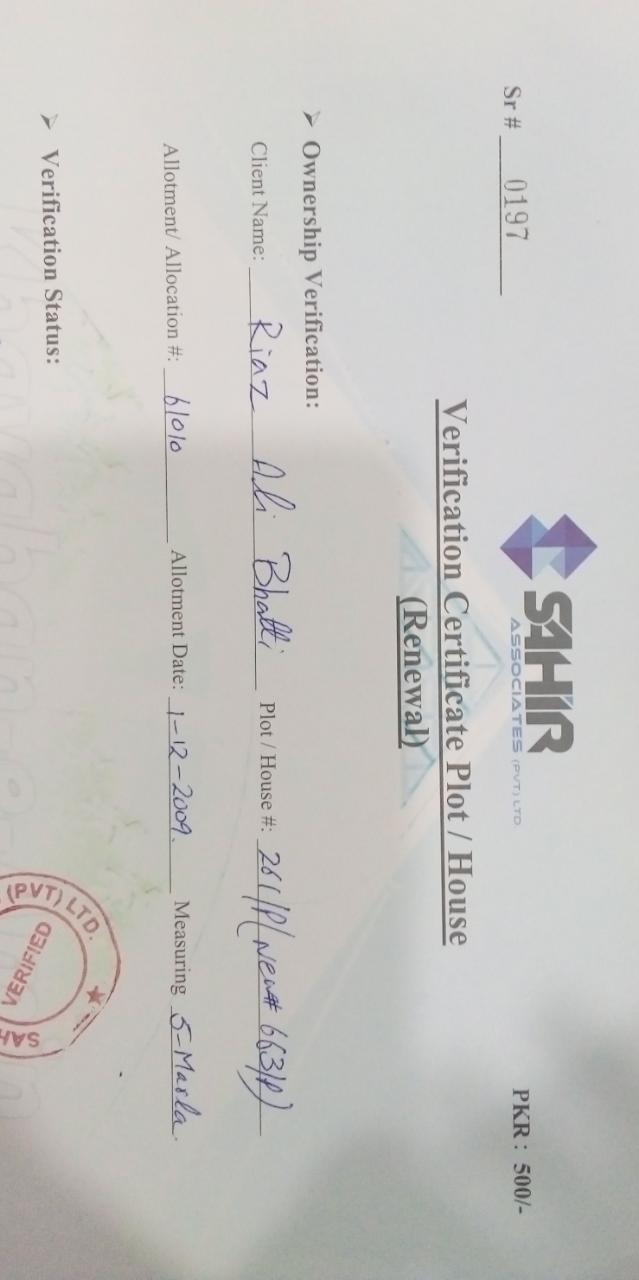 SAHIR
ASSOCIATES (PVT) LTD
Sr # 0197 PKR : 500/-
Verification Certificate Plot / House
(Renewal)
➤ Ownership Verification:
Client Name: Riaz Ali Bhatti Plot / House #: 261/P(New# 663/P)
Allotment/ Allocation #: 61010 Allotment Date: 1-12-2009. Measuring 5-Marla.
➤ Verification Status:
(PVT) LTD. ★ SAH
VERIFIED